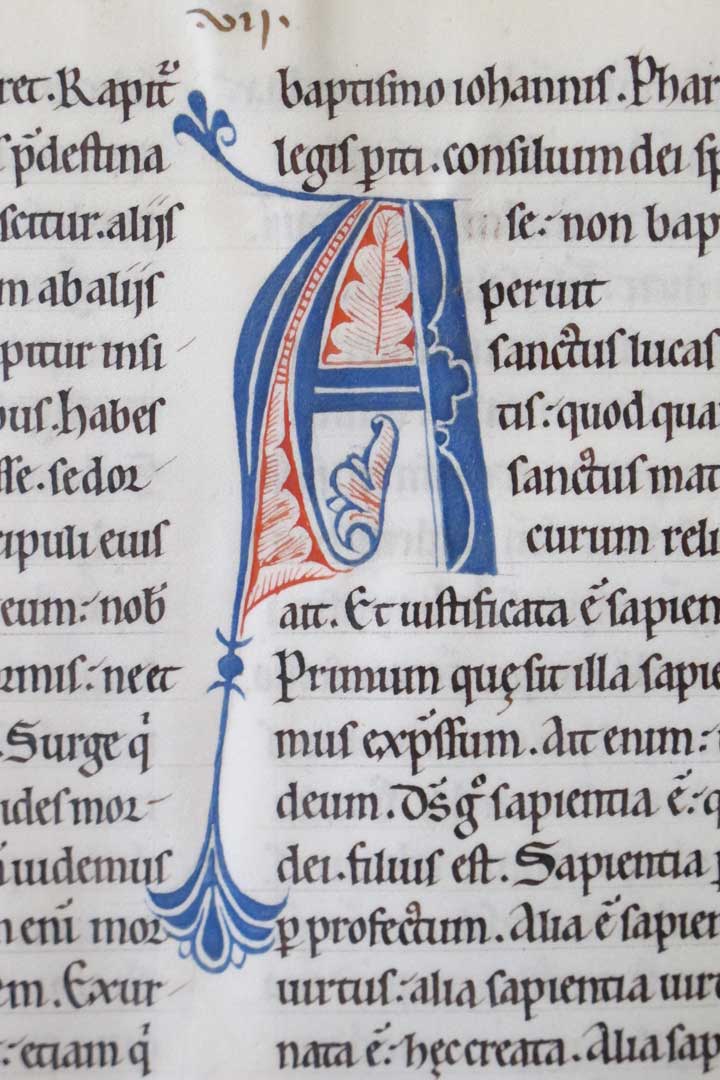 .vij.
ret. Rapit᷑
s p̄destina
scitur. alijs
m ab alijs
pitur insi
ous. habes
sse. sed or
cipuli eius
eum: nob̄
rmis: ne et
. Surge qⁱ
ides mor
uidemus
enī mor
em. Exur
: etiam qⁱ
baptismo iohannis. Phar
legis ꝑiti. consilium dei sp
se: non bap
Aperuit
sanctus lucas
tis: quod qua
sanctus mat
curum reli
ait. Et iustificata ē sapien
Primum quę sit illa sapie
mus exp̄ssum. Ait enim:
deum. Ds̄ gͦ sapientia ē: q
dei. filius est. Sapientia
ꝑ profectum. Alia ē sapien
uirtus: alia sapientia uirt
nata ē: hęc creata. Alia sap